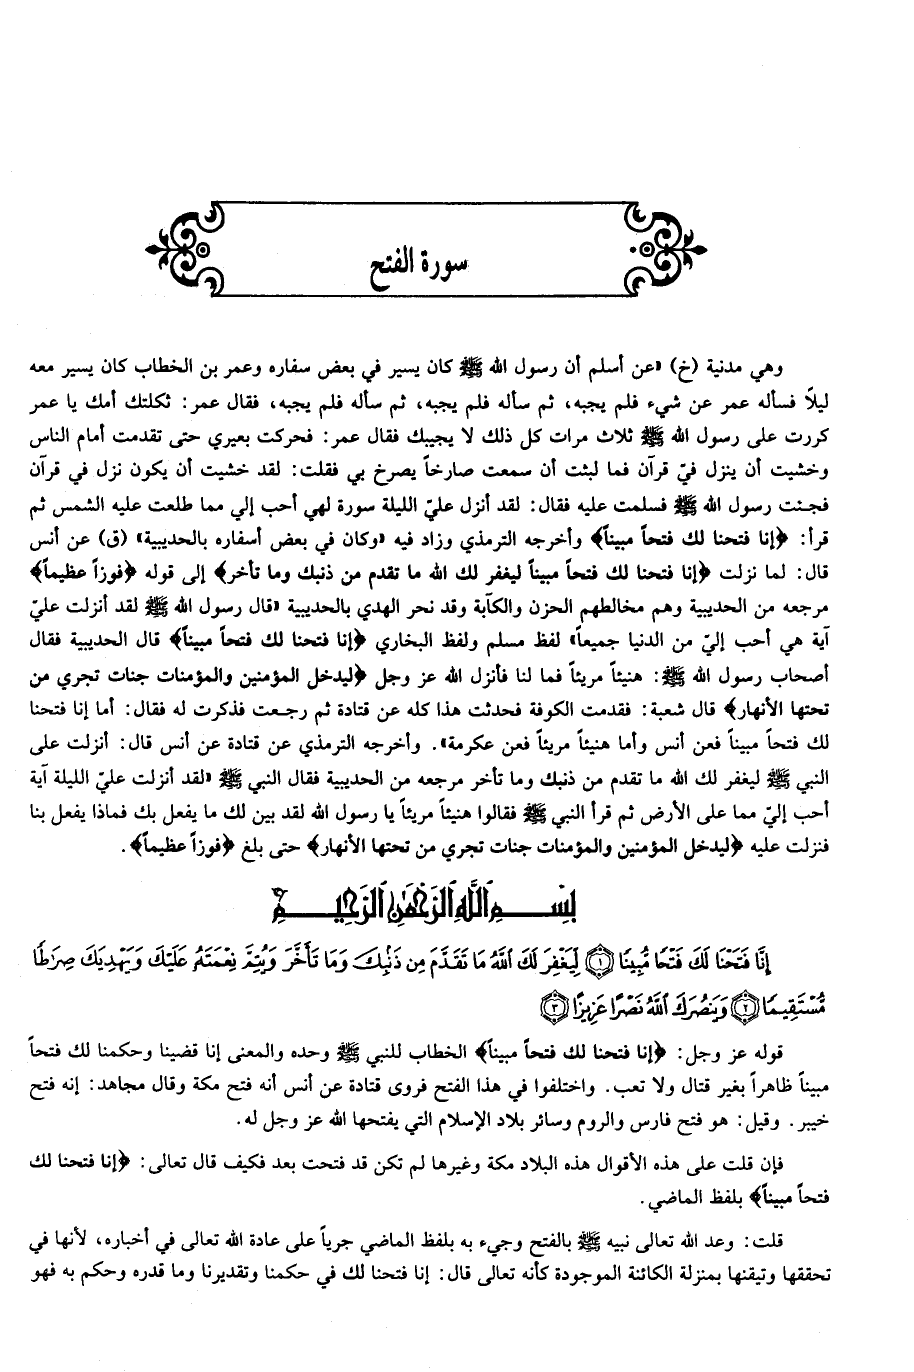 سورة الفتح
وهي مدنية (خ) «عن أسلم أن رسول الله ﷺ كان يسير في بعض سفاره وعمر بن الخطاب كان يسير معه
ليلاً فسأله عمر عن شيء فلم يجبه، ثم سأله فلم يجبه، ثم سأله فلم يجبه، فقال عمر: ثكلتك أمك يا عمر
كررت على رسول الله ﷺ ثلاث مرات كل ذلك لا يجيبك فقال عمر: فحركت بعيري حتى تقدمت أمام الناس
وخشيت أن ينزل فيّ قرآن فما لبثت أن سمعت صارخاً يصرخ بي فقلت: لقد خشيت أن يكون نزل في قرآن
فجئت رسول الله ﷺ فسلمت عليه فقال: لقد أنزل عليّ الليلة سورة لهي أحب إلي مما طلعت عليه الشمس ثم
قرأ: ﴿إنا فتحنا لك فتحاً مبيناً﴾ وأخرجه الترمذي وزاد فيه «وكان في بعض أسفاره بالحديبية» (ق) عن أنس
قال: لما نزلت ﴿إنا فتحنا لك فتحاً مبيناً ليغفر لك الله ما تقدم من ذنبك وما تأخر﴾ إلى قوله ﴿فوزاً عظيماً﴾
مرجعه من الحديبية وهم مخالطهم الحزن والكآبة وقد نحر الهدي بالحديبية «قال رسول الله ﷺ لقد أنزلت عليّ
آية هي أحب إليّ من الدنيا جميعاً» لفظ مسلم ولفظ البخاري ﴿إنا فتحنا لك فتحاً مبيناً﴾ قال الحديبية فقال
أصحاب رسول الله ﷺ: هنيئاً مريئاً فما لنا فأنزل الله عز وجل ﴿ليدخل المؤمنين والمؤمنات جنات تجري من
تحتها الأنهار﴾ قال شعبة: فقدمت الكوفة فحدثت هذا كله عن قتادة ثم رجعت فذكرت له فقال: أما إنا فتحنا
لك فتحاً مبيناً فعن أنس وأما هنيئاً مريئاً فعن عكرمة». وأخرجه الترمذي عن قتادة عن أنس قال: أنزلت على
النبي ﷺ ليغفر لك الله ما تقدم من ذنبك وما تأخر مرجعه من الحديبية فقال النبي ﷺ «لقد أنزلت عليّ الليلة آية
أحب إليّ مما على الأرض ثم قرأ النبي ﷺ فقالوا هنيئاً مريئاً يا رسول الله لقد بين لك ما يفعل بك فماذا يفعل بنا
فنزلت عليه ﴿ليدخل المؤمنين والمؤمنات جنات تجري من تحتها الأنهار﴾ حتى بلغ ﴿فوزاً عظيماً﴾.
بِسْمِ ٱللَّهِ ٱلرَّحْمَٰنِ ٱلرَّحِيمِ
إِنَّا فَتَحْنَا لَكَ فَتْحًا مُّبِينًا ﴿١﴾ لِّيَغْفِرَ لَكَ ٱللَّهُ مَا تَقَدَّمَ مِن ذَنۢبِكَ وَمَا تَأَخَّرَ وَيُتِمَّ نِعْمَتَهُۥ عَلَيْكَ وَيَهْدِيَكَ صِرَٰطًا
مُّسْتَقِيمًا ﴿٢﴾ وَيَنصُرَكَ ٱللَّهُ نَصْرًا عَزِيزًا ﴿٣﴾
قوله عز وجل: ﴿إنا فتحنا لك فتحاً مبيناً﴾ الخطاب للنبي ﷺ وحده والمعنى إنا قضينا وحكمنا لك فتحاً
مبيناً ظاهراً بغير قتال ولا تعب. واختلفوا في هذا الفتح فروى قتادة عن أنس أنه فتح مكة وقال مجاهد: إنه فتح
خيبر. وقيل: هو فتح فارس والروم وسائر بلاد الإسلام التي يفتحها الله عز وجل له.
فإن قلت على هذه الأقوال هذه البلاد مكة وغيرها لم تكن قد فتحت بعد فكيف قال تعالى: ﴿إنا فتحنا لك
فتحاً مبيناً﴾ بلفظ الماضي.
قلت: وعد الله تعالى نبيه ﷺ بالفتح وجيء به بلفظ الماضي جرياً على عادة الله تعالى في أخباره، لأنها في
تحققها وتيقنها بمنزلة الكائنة الموجودة كأنه تعالى قال: إنا فتحنا لك في حكمنا وتقديرنا وما قدره وحكم به فهو